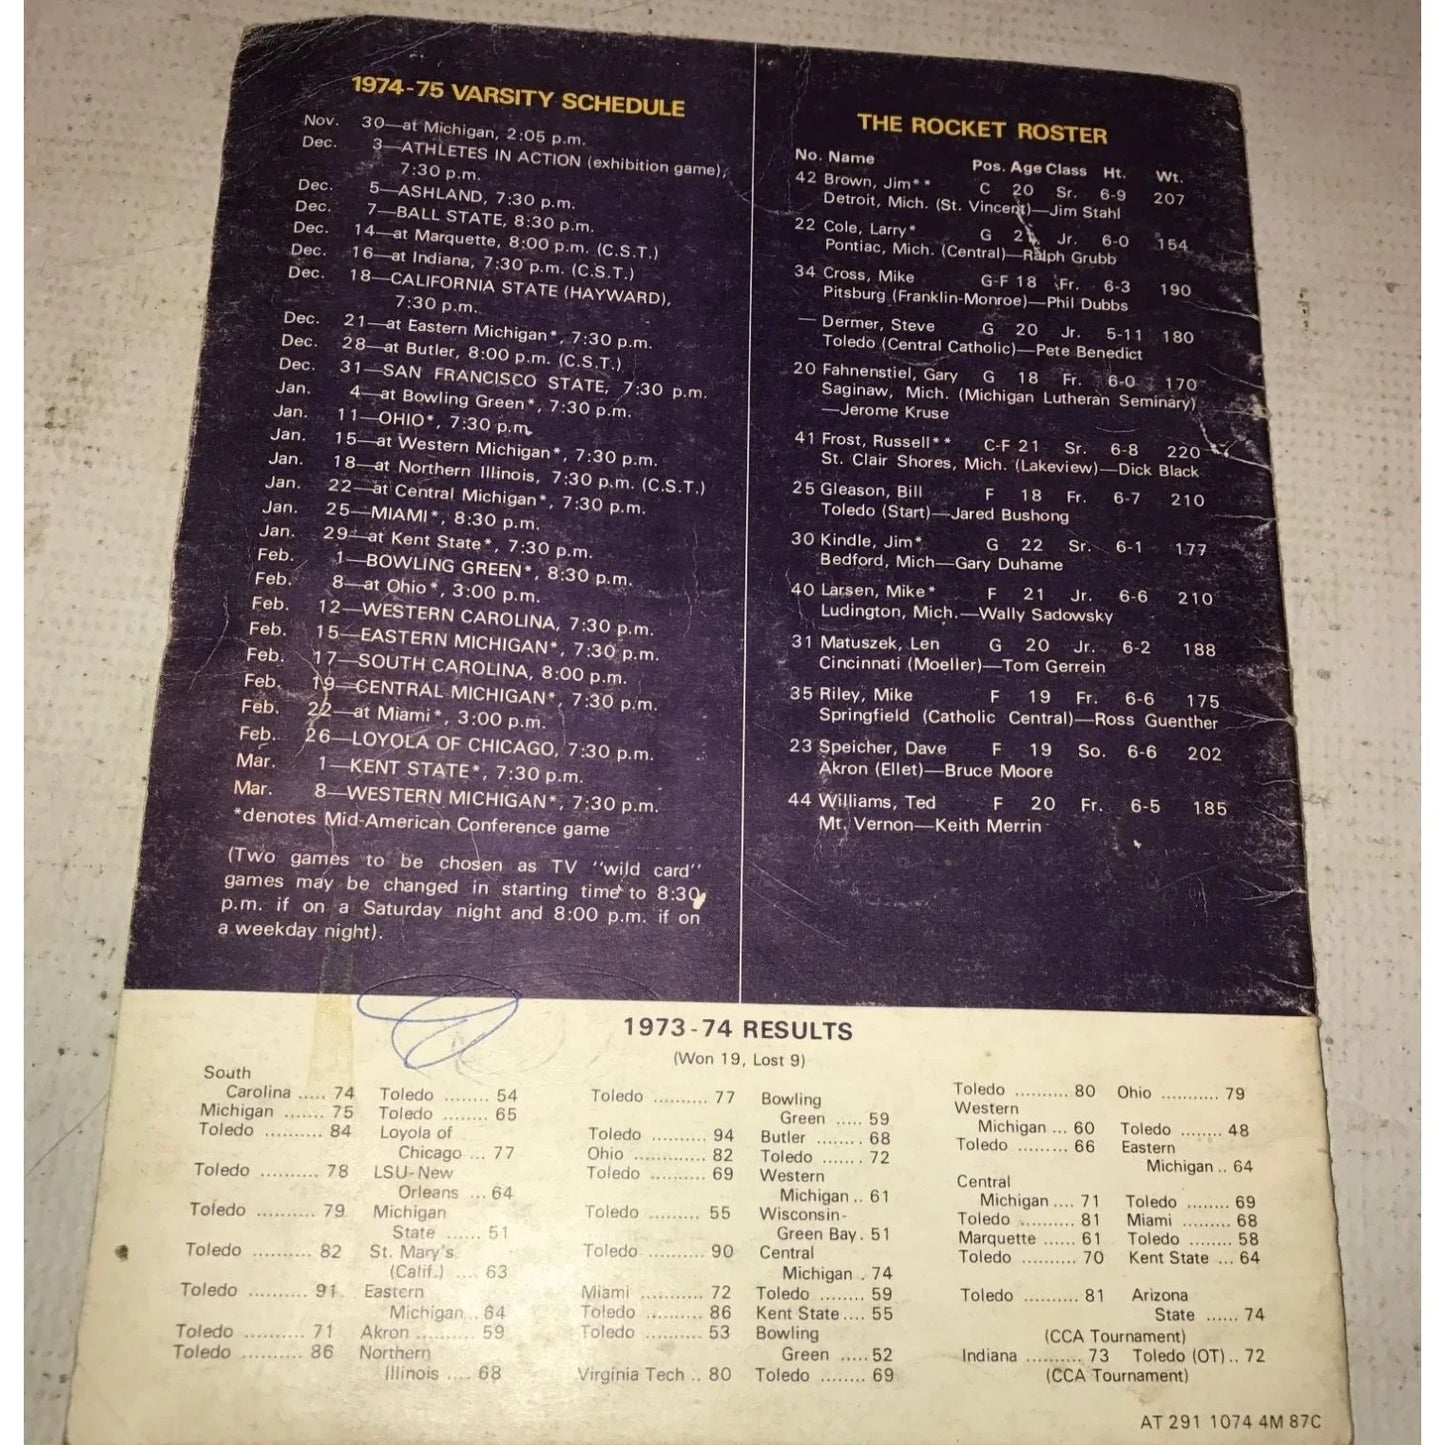 1974-75 VARSITY SCHEDULE
Nov. 30—at Michigan, 2:05 p.m.
Dec. 3—ATHLETES IN ACTION (exhibition game),
7:30 p.m.
Dec. 5—ASHLAND, 7:30 p.m.
Dec. 7—BALL STATE, 8:30 p.m.
Dec. 14—at Marquette, 8:00 p.m. (C.S.T.)
Dec. 16—at Indiana, 7:30 p.m. (C.S.T.)
Dec. 18—CALIFORNIA STATE (HAYWARD),
7:30 p.m.
Dec. 21—at Eastern Michigan*, 7:30 p.m.
Dec. 28—at Butler, 8:00 p.m. (C.S.T.)
Dec. 31—SAN FRANCISCO STATE, 7:30 p.m.
Jan. 4—at Bowling Green*, 7:30 p.m.
Jan. 11—OHIO*, 7:30 p.m.
Jan. 15—at Western Michigan*, 7:30 p.m.
Jan. 18—at Northern Illinois, 7:30 p.m. (C.S.T.)
Jan. 22—at Central Michigan*, 7:30 p.m.
Jan. 25—MIAMI*, 8:30 p.m.
Jan. 29—at Kent State*, 7:30 p.m.
Feb. 1—BOWLING GREEN*, 8:30 p.m.
Feb. 8—at Ohio*, 3:00 p.m.
Feb. 12—WESTERN CAROLINA, 7:30 p.m.
Feb. 15—EASTERN MICHIGAN*, 7:30 p.m.
Feb. 17—SOUTH CAROLINA, 8:00 p.m.
Feb. 19—CENTRAL MICHIGAN*, 7:30 p.m.
Feb. 22—at Miami*, 3:00 p.m.
Feb. 26—LOYOLA OF CHICAGO, 7:30 p.m.
Mar. 1—KENT STATE*, 7:30 p.m.
Mar. 8—WESTERN MICHIGAN*, 7:30 p.m.
*denotes Mid-American Conference game
(Two games to be chosen as TV "wild card"
games may be changed in starting time to 8:30
p.m. if on a Saturday night and 8:00 p.m. if on
a weekday night).
THE ROCKET ROSTER
No. Name Pos. Age Class Ht. Wt.
42 Brown, Jim** C 20 Sr. 6-9 207
Detroit, Mich. (St. Vincent)—Jim Stahl
22 Cole, Larry* G 21 Jr. 6-0 154
Pontiac, Mich. (Central)—Ralph Grubb
34 Cross, Mike G-F 18 Fr. 6-3 190
Pitsburg (Franklin-Monroe)—Phil Dubbs
— Dermer, Steve G 20 Jr. 5-11 180
Toledo (Central Catholic)—Pete Benedict
20 Fahnenstiel, Gary G 18 Fr. 6-0 170
Saginaw, Mich. (Michigan Lutheran Seminary)
—Jerome Kruse
41 Frost, Russell** C-F 21 Sr. 6-8 220
St. Clair Shores, Mich. (Lakeview)—Dick Black
25 Gleason, Bill F 18 Fr. 6-7 210
Toledo (Start)—Jared Bushong
30 Kindle, Jim* G 22 Sr. 6-1 177
Bedford, Mich—Gary Duhame
40 Larsen, Mike* F 21 Jr. 6-6 210
Ludington, Mich.—Wally Sadowsky
31 Matuszek, Len G 20 Jr. 6-2 188
Cincinnati (Moeller)—Tom Gerrein
35 Riley, Mike F 19 Fr. 6-6 175
Springfield (Catholic Central)—Ross Guenther
23 Speicher, Dave F 19 So. 6-6 202
Akron (Ellet)—Bruce Moore
44 Williams, Ted F 20 Fr. 6-5 185
Mt. Vernon—Keith Merrin
1973-74 RESULTS
(Won 19, Lost 9)
South
Carolina ..... 74 Toledo ........ 54
Michigan ....... 75 Toledo ........ 65
Toledo .......... 84 Loyola of
Chicago ... 77
Toledo .......... 78 LSU-New
Orleans ... 64
Toledo .......... 79 Michigan
State ...... 51
Toledo .......... 82 St. Mary's
(Calif.) .... 63
Toledo .......... 91 Eastern
Michigan... 64
Toledo .......... 71 Akron .......... 59
Toledo .......... 86 Northern
Illinois .... 68
Toledo .......... 77 Bowling
Green ..... 59
Toledo .......... 94 Butler ........ 68
Ohio ............. 82 Toledo ....... 72
Toledo .......... 69 Western
Michigan .. 61
Toledo ......... 55 Wisconsin-
Green Bay. 51
Toledo .......... 90 Central
Michigan . 74
Miami ........... 72 Toledo ........ 59
Toledo .......... 86 Kent State.... 55
Toledo .......... 53 Bowling
Green ..... 52
Virginia Tech .. 80 Toledo ........ 69
Toledo ........... 80 Ohio ........... 79
Western
Michigan ... 60 Toledo ........ 48
Toledo ......... 66 Eastern
Michigan .. 64
Central
Michigan .... 71 Toledo ........ 69
Toledo .......... 81 Miami ......... 68
Marquette ...... 61 Toledo ........ 58
Toledo .......... 70 Kent State ... 64
Toledo .......... 81 Arizona
State ...... 74
(CCA Tournament)
Indiana .......... 73 Toledo (OT) .. 72
(CCA Tournament)
AT 291 1074 4M 87C